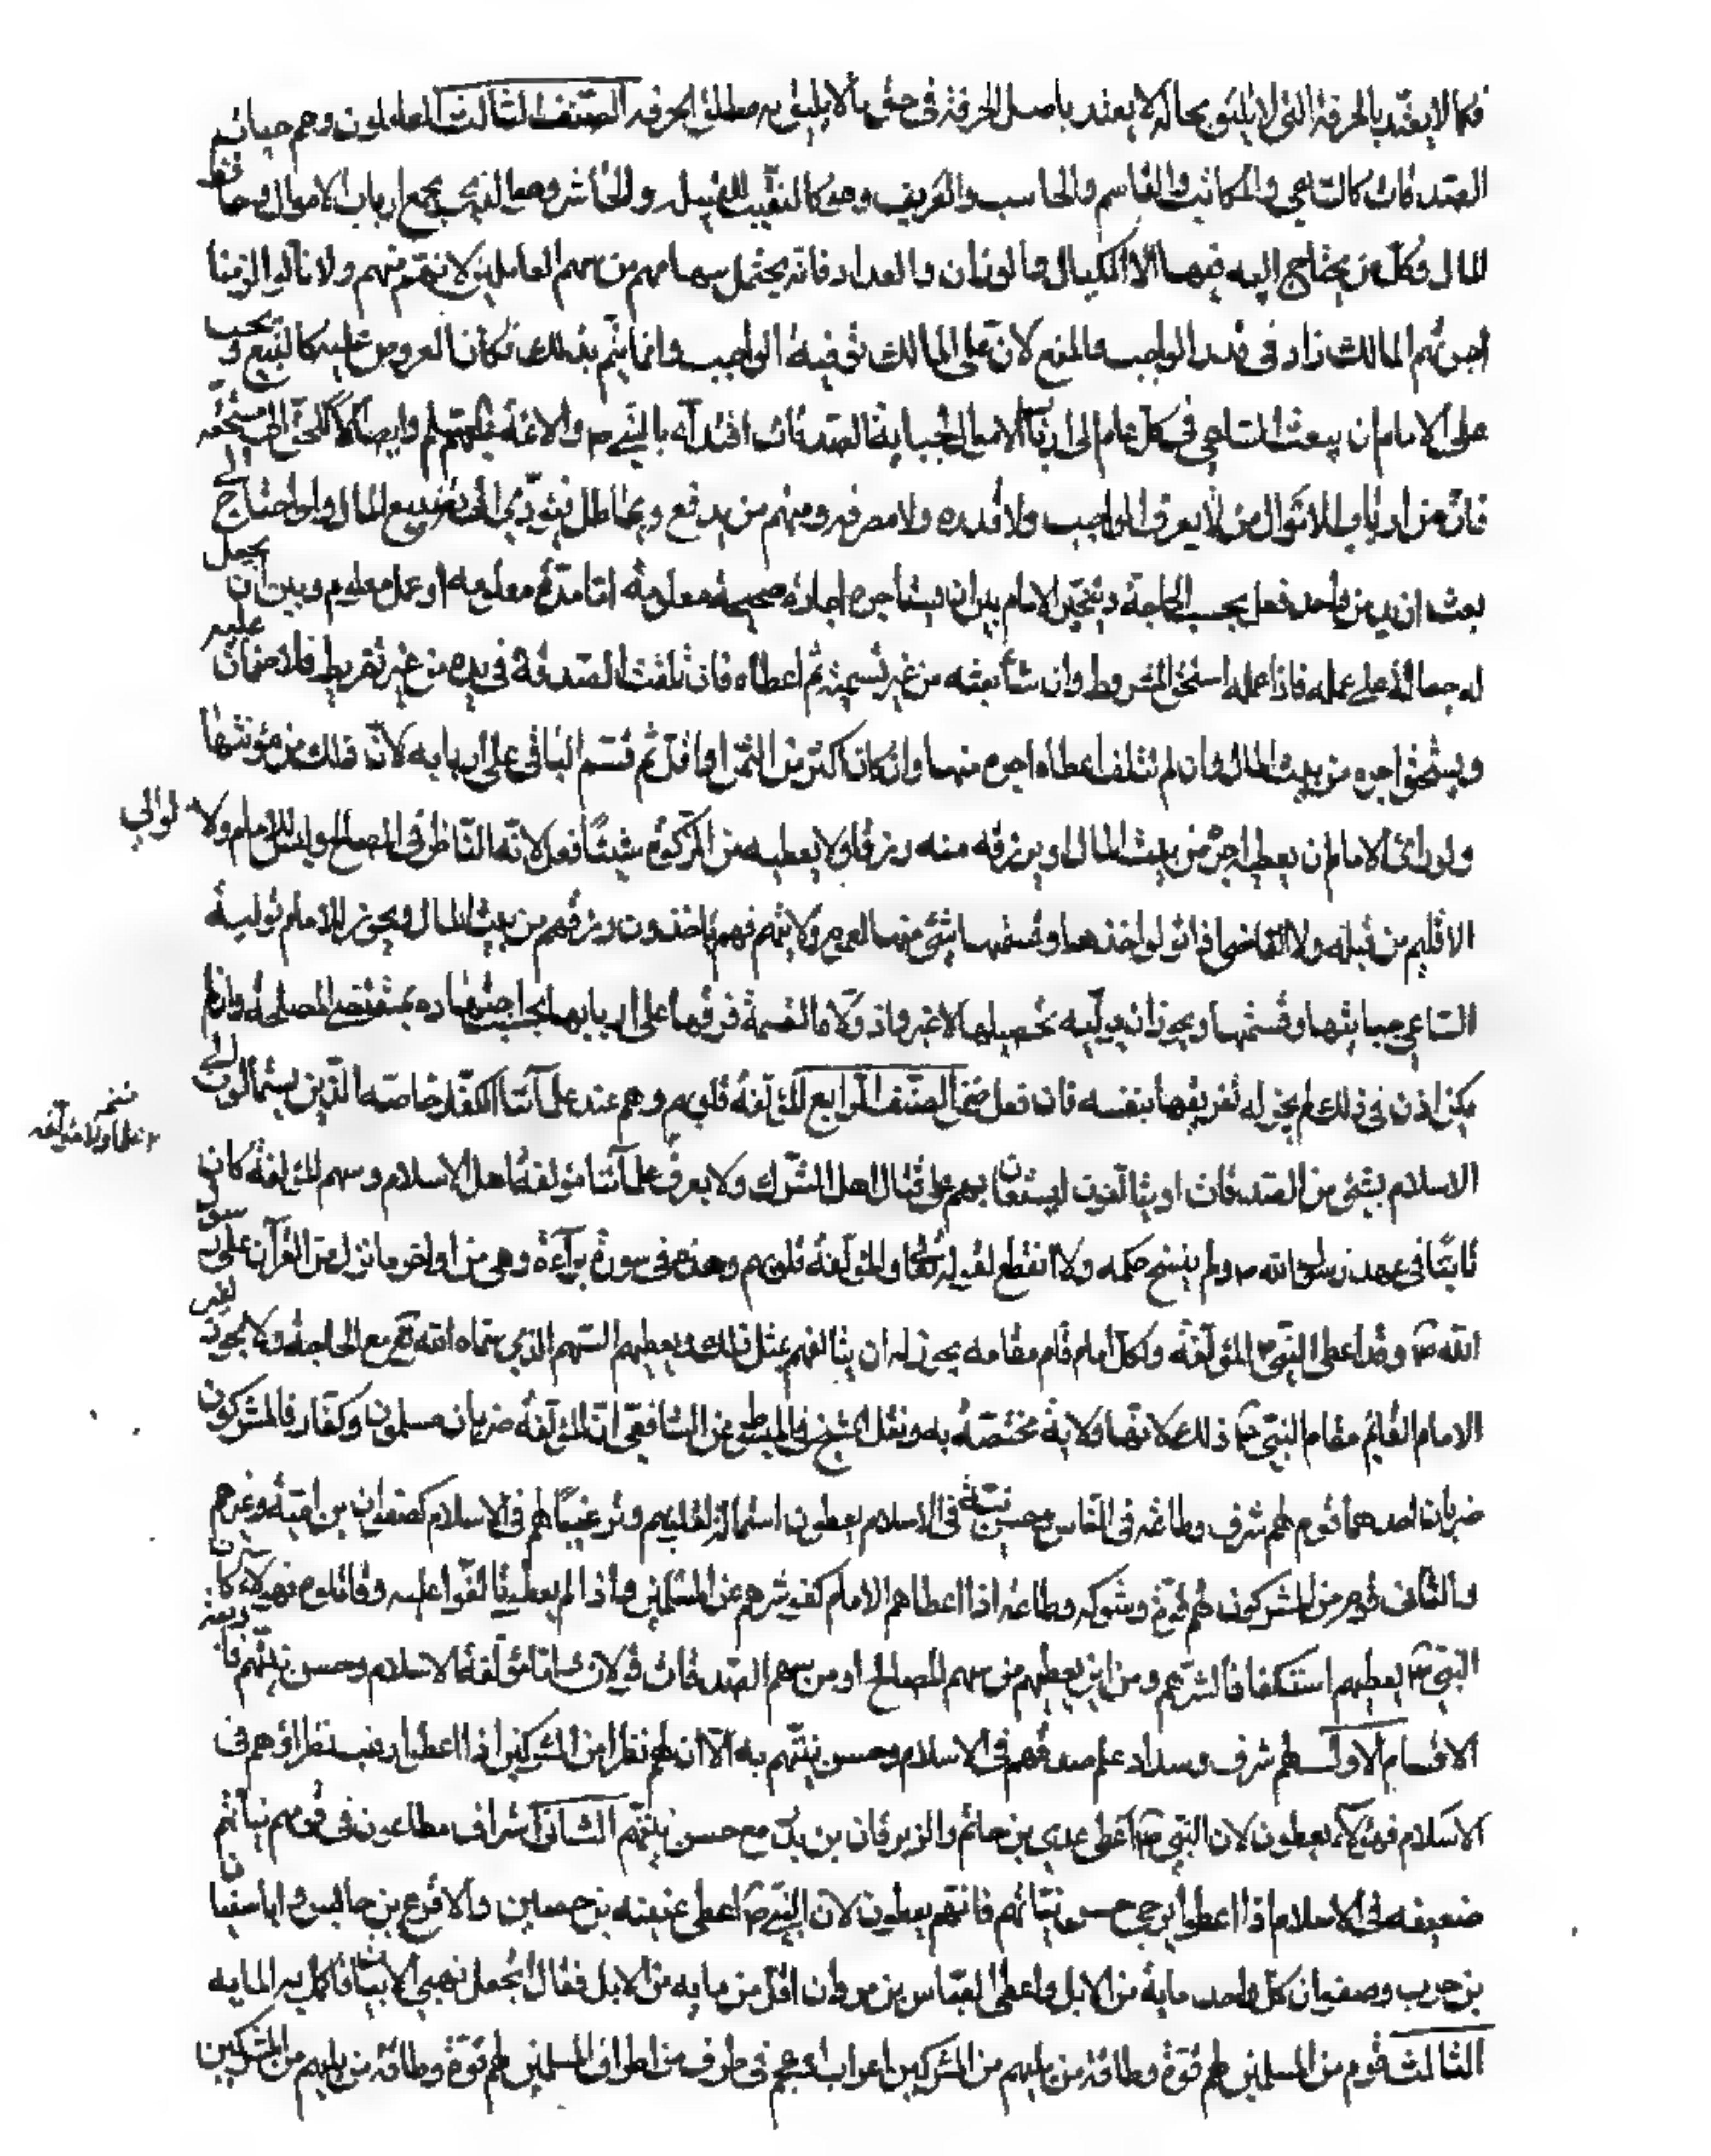 فكما لا يعتد بالحرفة التي لا تليق بحاله لا يعتد باصل الحرفة في حق ما لا يليق به مطلق الحرفه الصنف الثالث العاملون وهم جباة
الصدقات كالساعي والكاتب والقاسم والحاسب والعريف وهو كالنقيب للقبيله والحاشر وهو الذي يجمع ارباب الاموال وحافظ
المال وكل من يحتاج اليه فيها اما الكيال والوزان والعداد فانه يحتمل سهامهم من سهم العاملين لانهم منهم ولانا لو الزمنا
اجرتهم المالك زاد في قدر الواجب والمنع لان على المالك توفية الواجب وانما يتم بذلك فكانا لعروض عليه كالبيع ويجب
على الامام ان يبعث الساعي في كل عام الى ارباب الاموال لجباية الصدقات اقتداء بالنبي ص والائمة عليهم السلم وايصالا للحق الى مستحقه
فان من ارباب الاموال من لا يعرف الواجب ولا قدره ولا مصرفه ومنهم من يدفع ويماطل فيؤدي الى تضييع المال ولو احتاج الى
بعث ازيد من واحد فعل بحسب الحاجة ويتخير الامام بين ان يستأجره اجارة صحيحة معلومة اما مدة معلومه او عمل معلوم وبين ان يجعل
له جعالة على عمله فاذا عمله استحق المشروط وان شاء بعثه من غير تسمية ثم اعطاه فان تلفت الصدقة في يده من غير تفريط فلا ضمان عليه
ويستحق اجره من بيت المال وان لم تتلف اعطاه اجره منها وان كان اكثر من الثمن او اقل ثم قسم الباقي على اربابه لان ذلك من مؤنتها
ولو رأى الامام ان يعطيه اجره من بيت المال او يرزقه منه رزقا ولا يعطيه من الزكوة شيئا فعل لانه الناظر في المصالح وليس للامام ولا لوالي
الاقليم من قبله ولا القاضي اذا تولوا اخذها وقسمها شئ منها لعموم ولايتهم فهم ياخذون رزقهم من بيت المال ويجوز للامام تولية
الساعي جبايتها وقسمتها ويجوز ان يوليه تحصيلها لا غير واذا ولاه القسمة فرقها على اربابها بحسب اجتهاده بمقتضى المصلحة وان لم
يكن اذن في ذلك لم يجز له تفريقها بنفسه فان فعل ضمن الصنف الرابع المؤلفة قلوبهم وهم عند علمائنا الكفار خاصة الذين يستمالون الى
الاسلام بشئ من الصدقات او يتالفون ليستعان بهم على قتال اهل الشرك ولا يعرف علمائنا مؤلفة اهل الاسلام وسهم المؤلفة كان
ثابتا في عهد رسول الله ص ولم ينسخ حكمه ولا انقطع لقوله تعالى والمؤلفة قلوبهم وهذه في سورة براءة وهي من اواخر ما نزل من القرآن على رسول
الله ص وقد اعطى النبي ص المؤلفة ولكل امام قام مقامه يجوز له ان يتالفهم بمثل ذلك ويعطيهم السهم الذي سماه الله تع مع الحاجة ولا يجوز لغير
الامام القائم مقام النبي ص ذلك لانها ولاية مختصة به ونقل الشيخ في المبسوط عن الشافعي ان المؤلفة ضربان مسلمون وكفار فالمشركون
ضربان احدهما قوم لهم شرف وطاعة في الناس وحسن نية في الاسلام يعطون استمالة لقلوبهم وترغيبا لهم في الاسلام كصفوان بن امية وغيرهم
والثاني قوم من المشركون لهم قوة وشوكة وطاعه اذا اعطاهم الامام كفوا شرهم عن المسلمين واذا لم يعطوا تالفوا عليه وقاتلوه فهؤلاء كان
النبي ص يعطيهم استكفافا لشرهم ومن اين يعطيهم من سهم المصالح او من سهم الصدقات قولان اما مؤلفة الاسلام وحسن نيتهم فاربعة
الاقسام الاول لهم شرف وسداد علم صدقهم في الاسلام وحسن نيتهم به الا ان لهم نظراء من المشركين اذا اعطوا رغب نظراؤهم في
الاسلام فهؤلاء يعطون لان النبي ص اعطى عدي بن حاتم والزبرقان بن بدر مع حسن نيتهم الثاني اشراف مطاعون في قومهم نياتهم
ضعيفه في الاسلام اذا اعطوا يرجى حسن نياتهم فانهم يعطون لان النبي ص اعطى عيينه بن حصين والاقرع بن حابس وابا سفيان
بن حرب وصفوان كل واحد ماية من الابل واعطى العباس بن مرداس اقل من مايه من الابل فقال اتجعل نهبي الابيات فاكمل له المايه
الثالث قوم من المسلمين لهم قوة وطاقة من يليهم من المشركين اعراب او عجم في طرف من اطراف المسلمين لهم قوة وطاقة من يليهم من المشركين